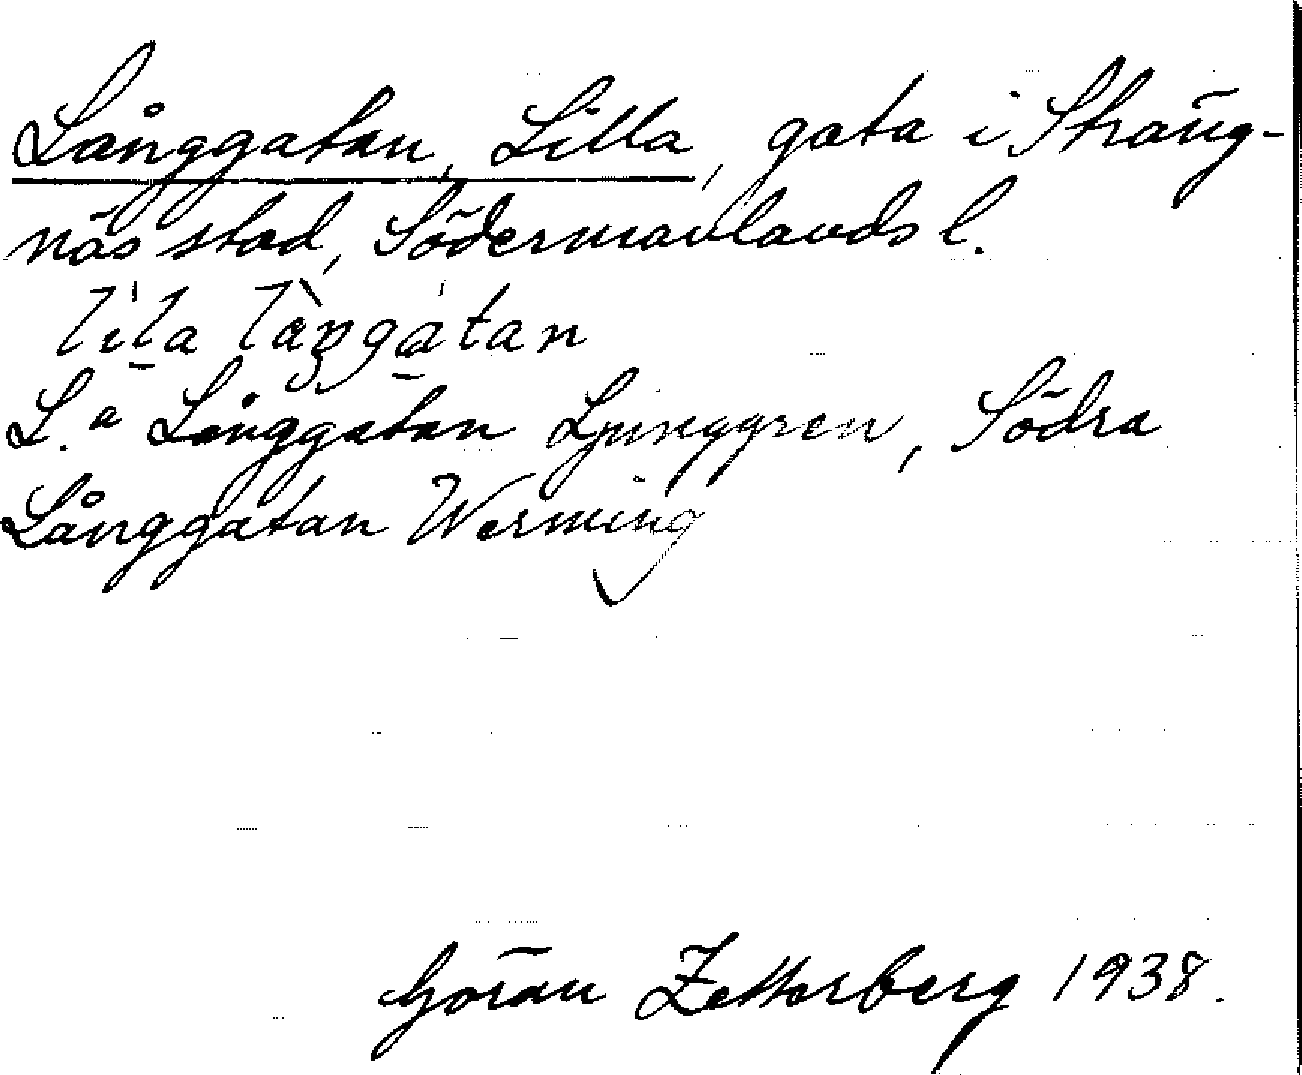 Långgatan, Lilla, gata i Sträng-
näs stad, Södermanlands l.
lila låŋgatan
L.a Långgatan Ljunggren, Södra
Långgatan Werming
Göran Zetterberg 1938.